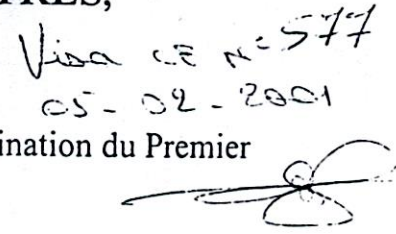 TRES,
Visa CE N° 577
05-02-2001
ination du Premier